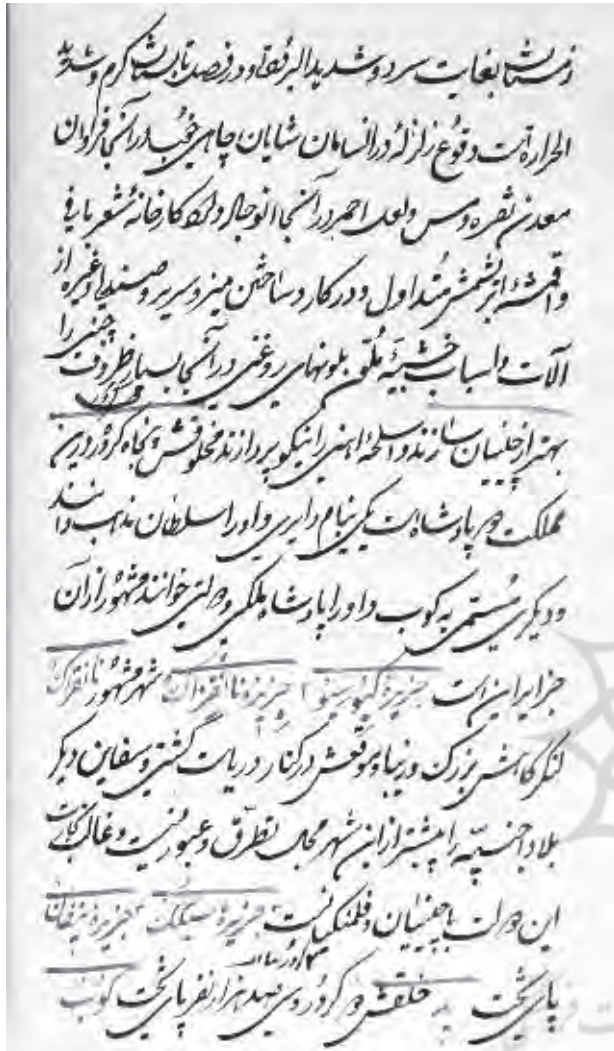 زمستانش بغایت سرد و شدید البروده و در فصل تابستان گرم و شدید
الحرارة است وقوع زلزله در انسامان شایان چاهی خوب در آنجا فراوان
معدن نقره و مس و لعل احمر در آنجا انوجاد دارد کارخانهٔ شعر بافی
و اقمشهٔ ابریشمش متداول و در کار و ساختن میز و سریر و صندلی و غیره از
آلات و اسباب خشبیهٔ ملون بلونهای روغنی در آنجا بسیار ظروف چینی را
بهتر از چینیان سازند و اسلحهٔ آهنی را نیکو پردازند مخلوقش پنجاه کرور درین
مملکت دو پادشاه است یکی بنام دایری و او را سلطان مذهب دانند
و دیگری مسمی به کوب و او را پادشاه ملکی و دولتی خوانند مشهور از آن
جزایر این است جزیرهٔ جزیرهٔ شهر مشهور
لنگرگاهش بزرگ و زیبا و موقعش در کنار دریاست کشتی و سفاین دیگر
بلاد اجنبیه را پیشتر از این شهر محل تطرق و عبور نیست و غالب تجارت
این دولت با چینیان و فلمنکیانست جزیرهٔ جزیرهٔ
پای تخت خلقش کرور و سیصد هزار نفر پای تخت کوب